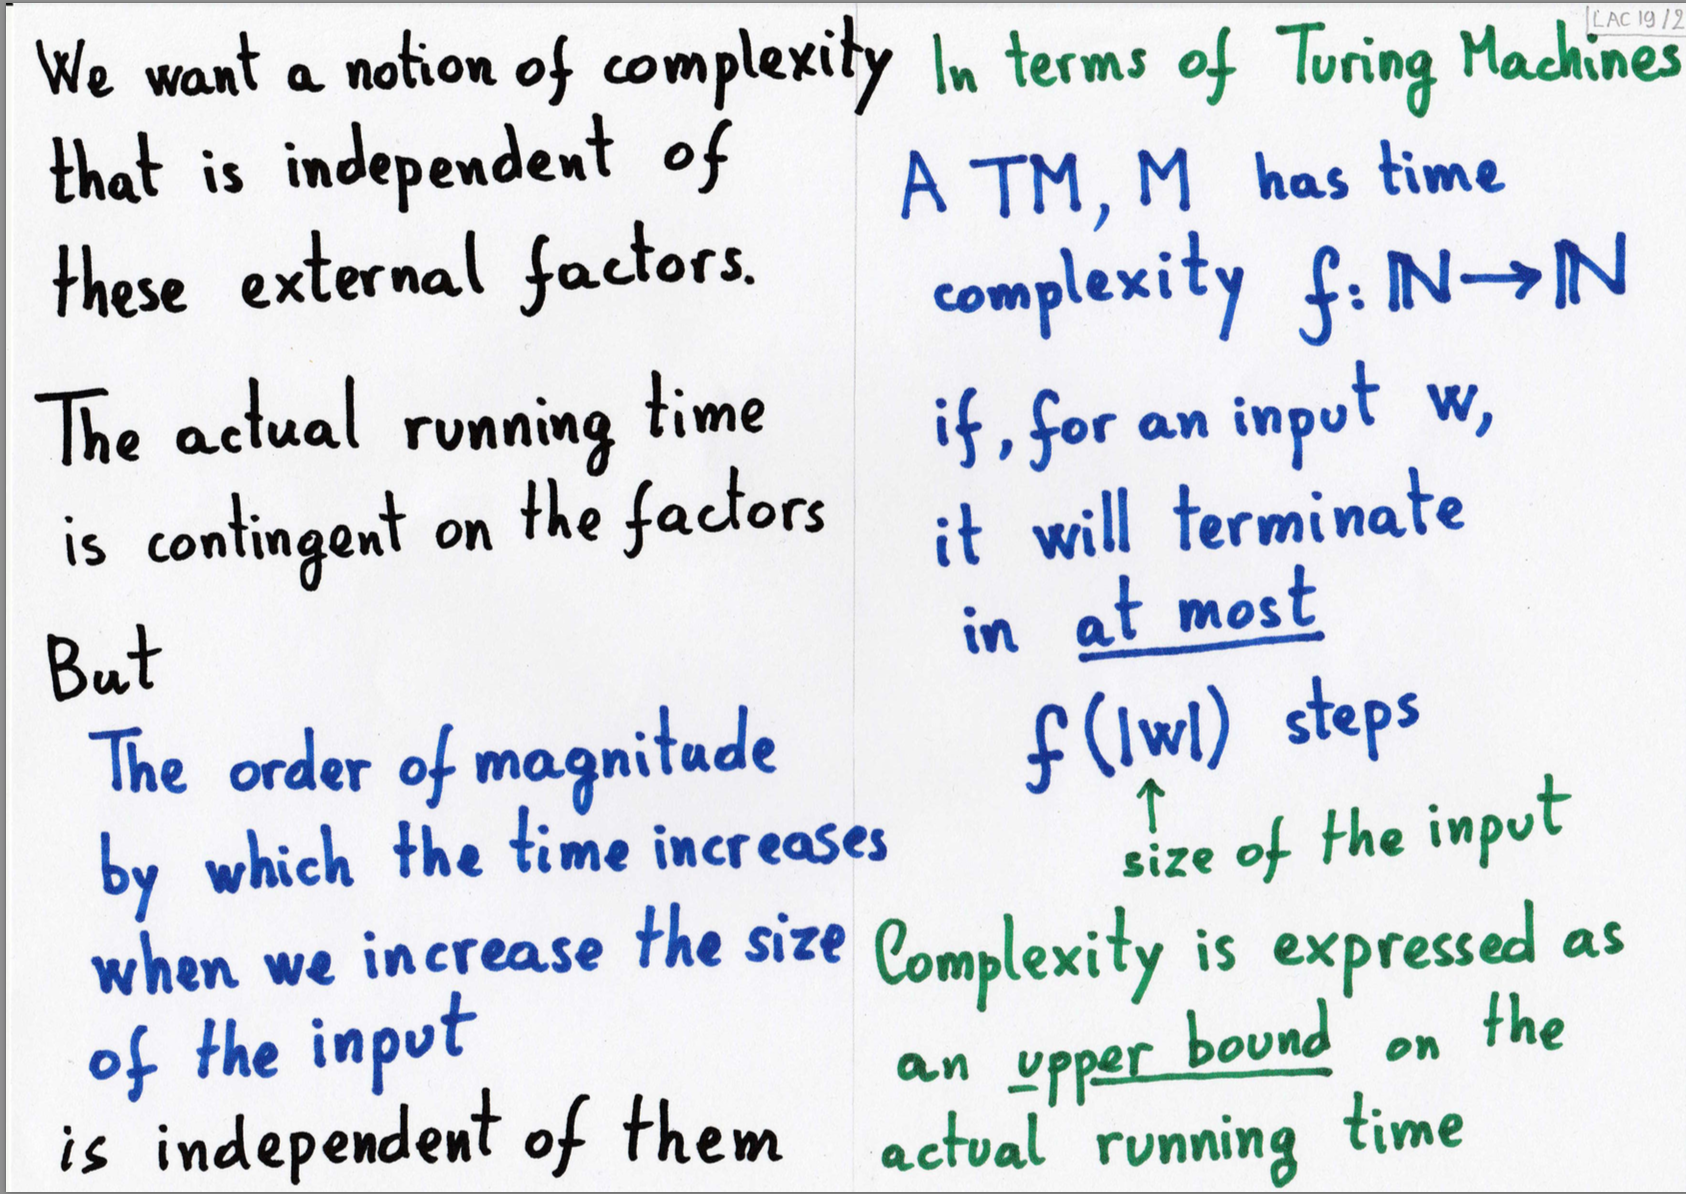 We want a notion of complexity
that is independent of
these external factors.
The actual running time
is contingent on the factors
But
The order of magnitude
by which the time increases
when we increase the size
of the input
is independent of them
LAC 19/2
In terms of Turing Machines
A TM, M has time
complexity f: ℕ→ℕ
if, for an input w,
it will terminate
in at most
f(|w|) steps
↑
size of the input
Complexity is expressed as
an upper bound on the
actual running time